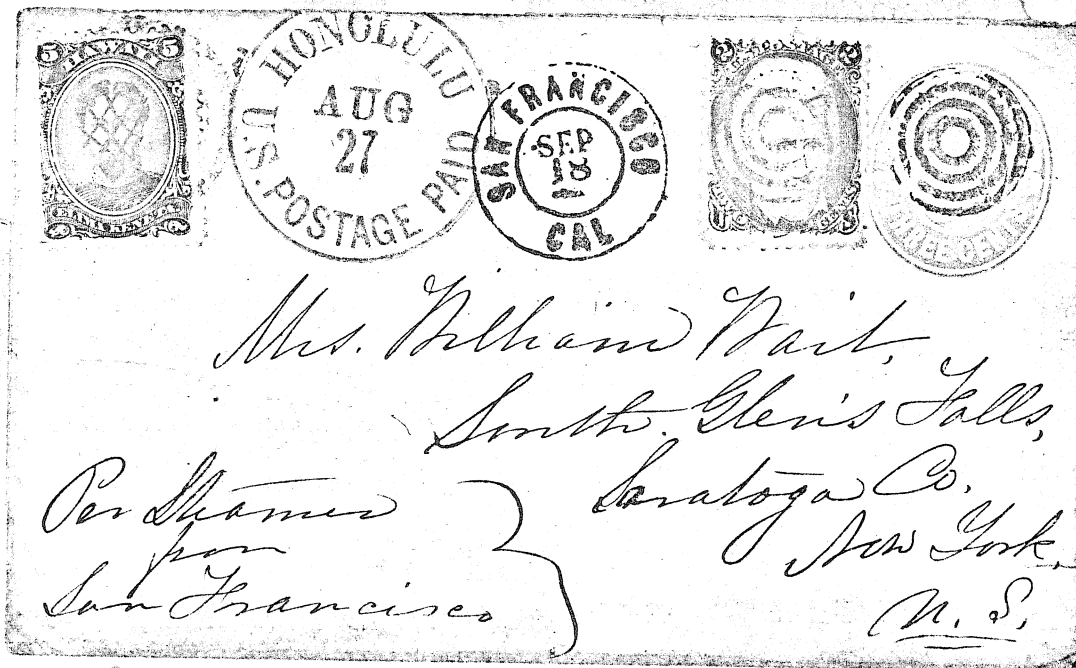 5 5
HONOLULU
AUG
27
U.S. POSTAGE PAID
SAN FRANCISCO
SEP
18
CAL
2 2
U S
THREE CENTS
Mrs. William Wait,
South Glen's Falls,
Saratoga Co.
New York,
U. S.
Per Steamer
from
San Francisco